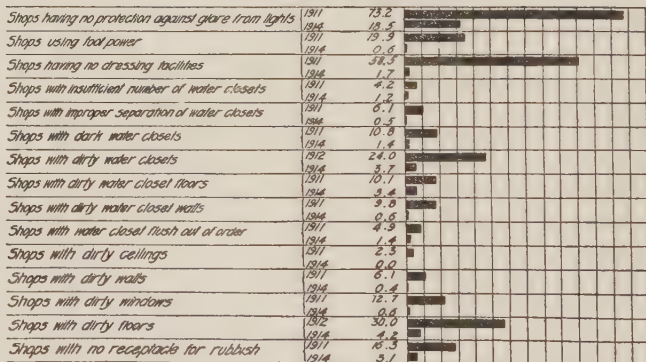 Shops having no protection against glare from lights 1911 73.2
1914 18.5
Shops using foot power 1911 19.9
1914 0.6
Shops having no dressing facilities 1911 58.5
1914 1.7
Shops with insufficient number of water closets 1911 4.2
1914 1.2
Shops with improper separation of water closets 1911 6.1
1914 0.5
Shops with dark water closets 1911 10.8
1914 1.4
Shops with dirty water closets 1912 24.0
1914 3.7
Shops with dirty water closet floors 1911 10.1
1914 3.4
Shops with dirty water closet walls 1911 9.8
1914 0.6
Shops with water closet flush out of order 1911 4.9
1914 1.4
Shops with dirty ceilings 1911 2.3
1914 0.0
Shops with dirty walls 1911 6.1
1914 0.4
Shops with dirty windows 1911 12.7
1914 0.6
Shops with dirty floors 1912 30.0
1914 4.2
Shops with no receptacle for rubbish 1911 16.3
1914 3.1